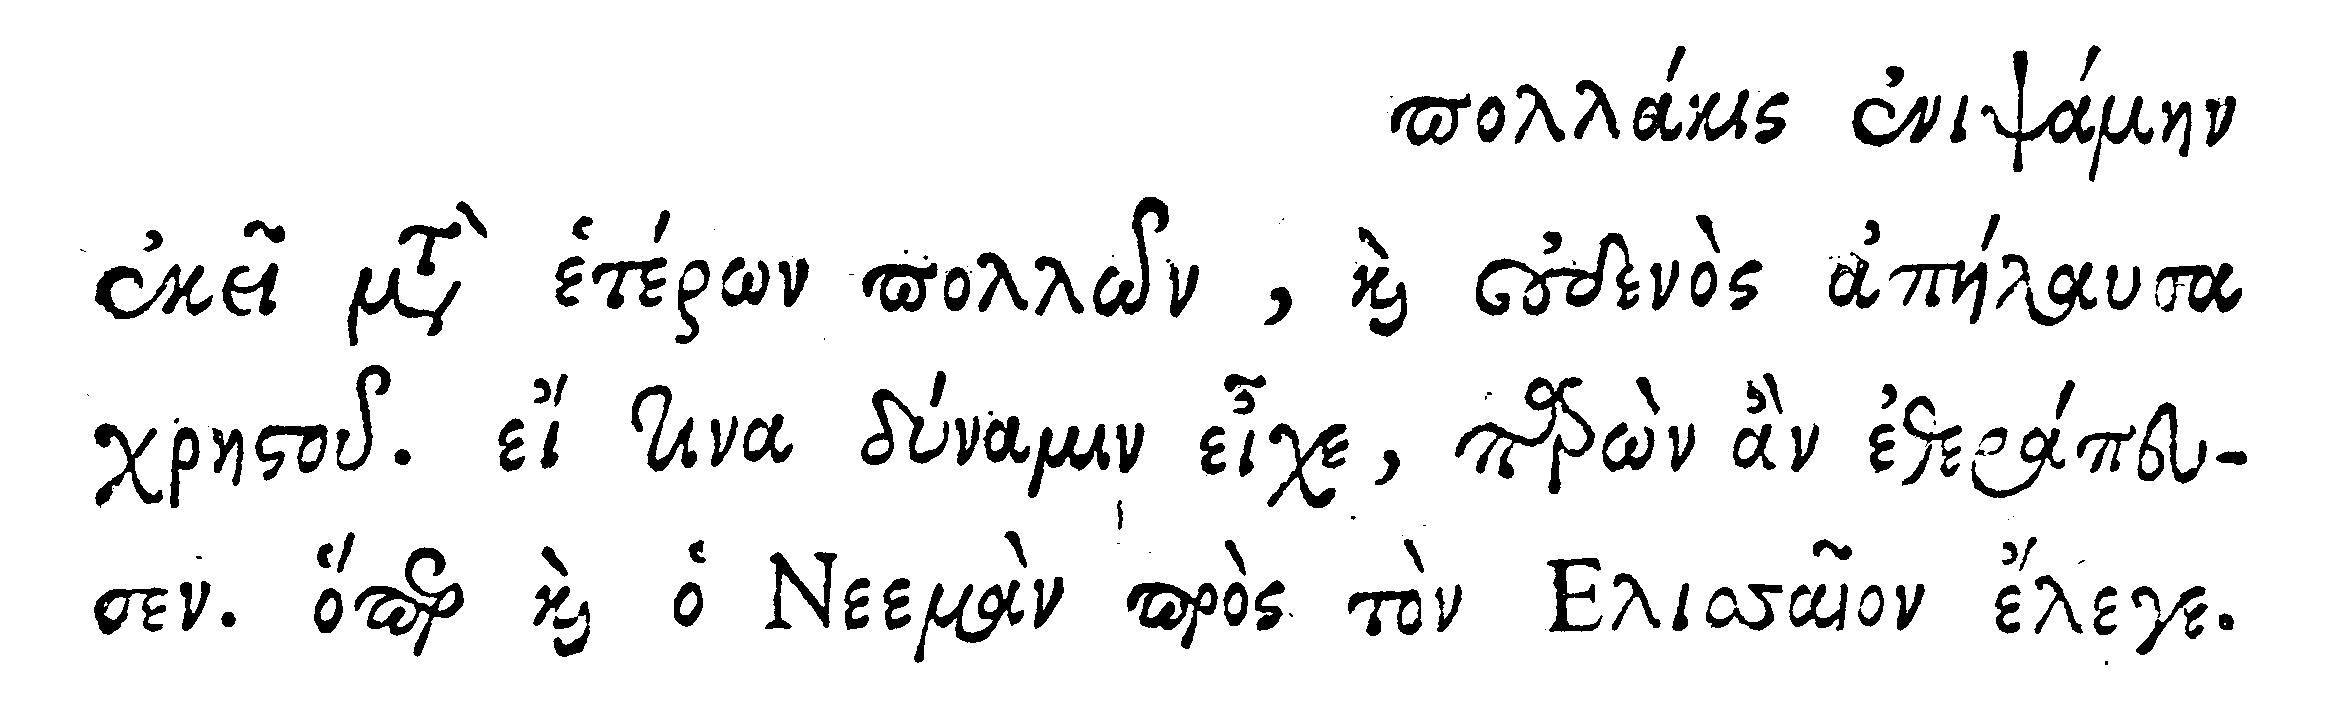 πολλάκις ἐνιψάμην
ἐκεῖ μετὰ ἑτέρων πολλῶν, καὶ οὐδενὸς ἀπήλαυσα
χρηστοῦ. εἴ τινα δύναμιν εἶχε, πηρὸν ἂν ἐθεράπευ-
σεν. ὅπερ καὶ ὁ Νεεμὰν πρὸς τὸν Ελισσαῖον ἔλεγε.